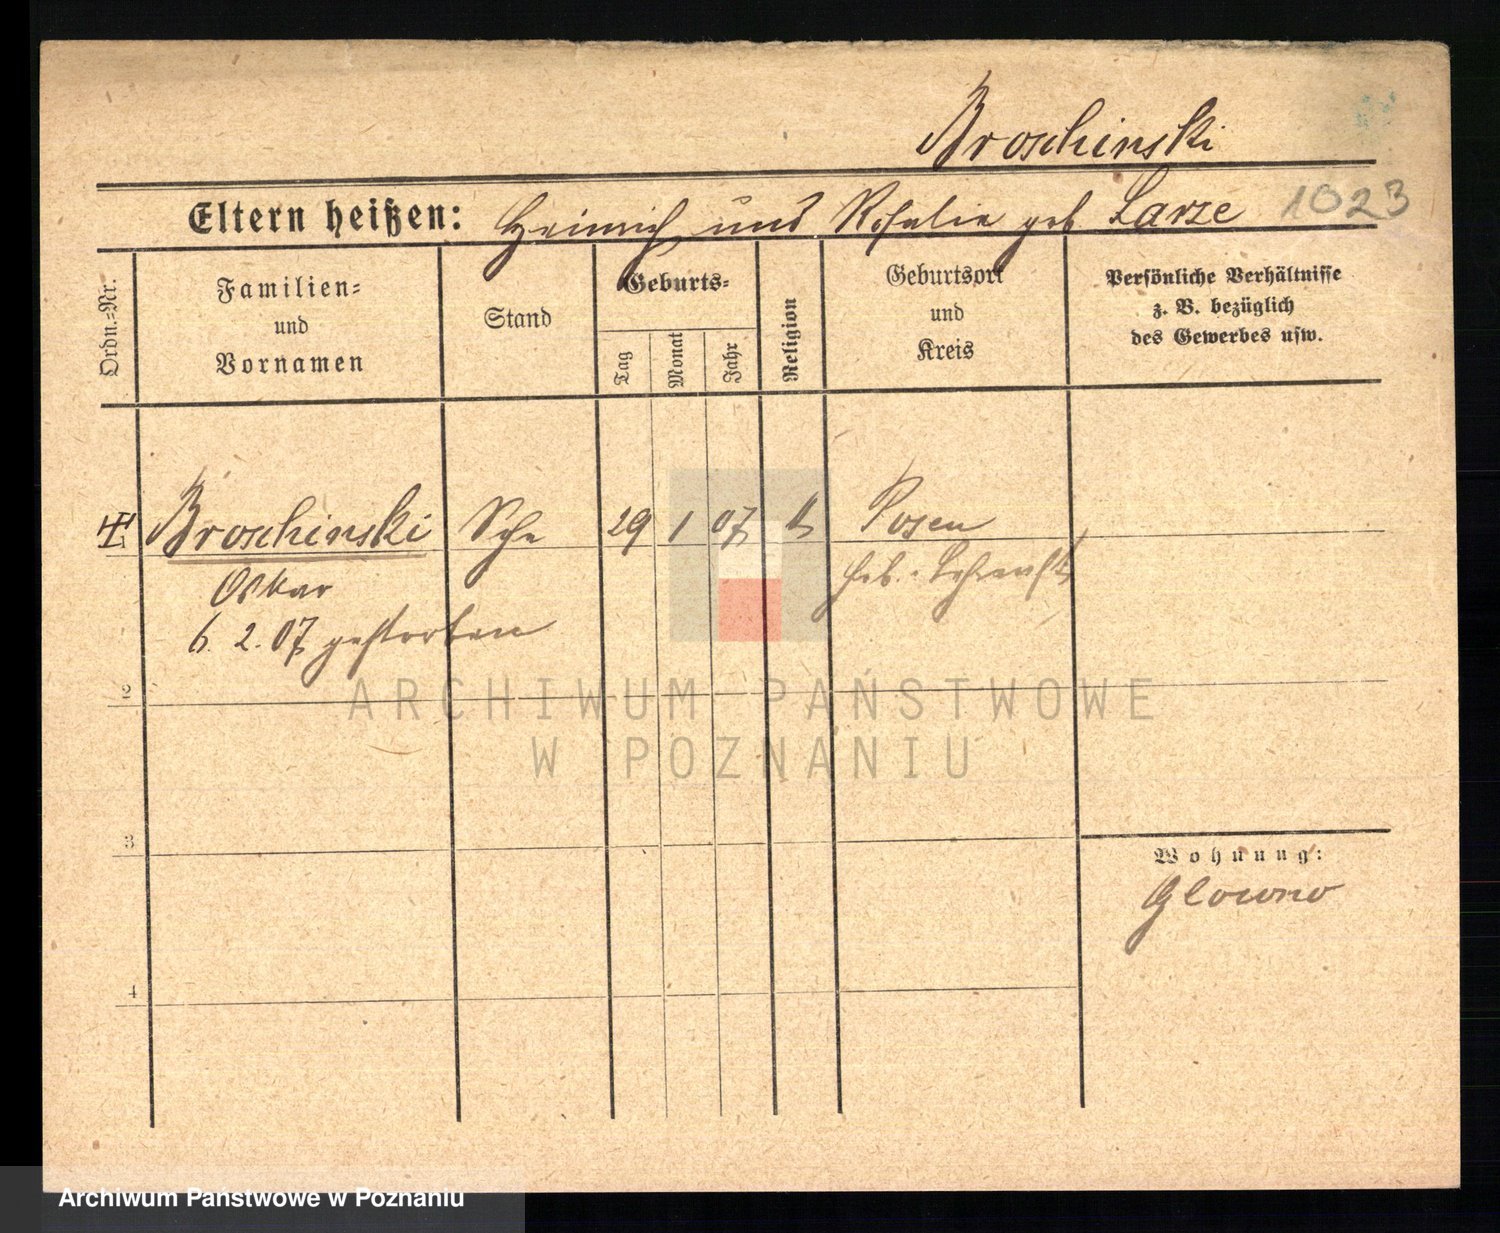 Broschinski
Eltern heißen: Heinrich und Rosalie geb. Larze 1023
Ordn.=Nr.
Familien=
und
Vornamen
Stand
Geburts=
Tag
Monat
Jahr
Religion
Geburtsort
und
Kreis
Persönliche Verhältnisse
z. B. bezüglich
des Gewerbes usw.
Broschinski 29 1 07 Posen
Oskar
6. 2. 07 gestorben
2
3
4
Wohnung:
Glowno
ARCHIWUM PAŃSTWOWE
W POZNANIU
Archiwum Państwowe w Poznaniu